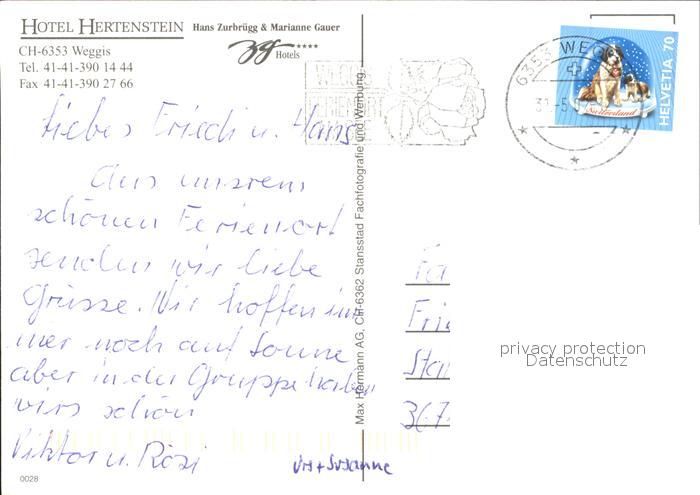 HOTEL HERTENSTEIN Hans Zurbrügg & Marianne Gauer
CH-6353 Weggis
Tel. 41-41-390 14 44
Fax 41-41-390 27 66
Hotels
6353 WEGG
HELVETIA 70
Switzerland
Liebes Friedi u. Hans
Aus unserem
schönen Ferienort
senden wir liebe
Grüsse. Wir hoffen im
mer noch auf Sonne
aber in der Gruppe haben
wirs schön
Viktor u. Rosi
Urs + Susanne
Max Hermann AG, CH-6362 Stansstad Fachfotografie und Werbung
Fa
Fri
Sta
367
privacy protection
Datenschutz
0028